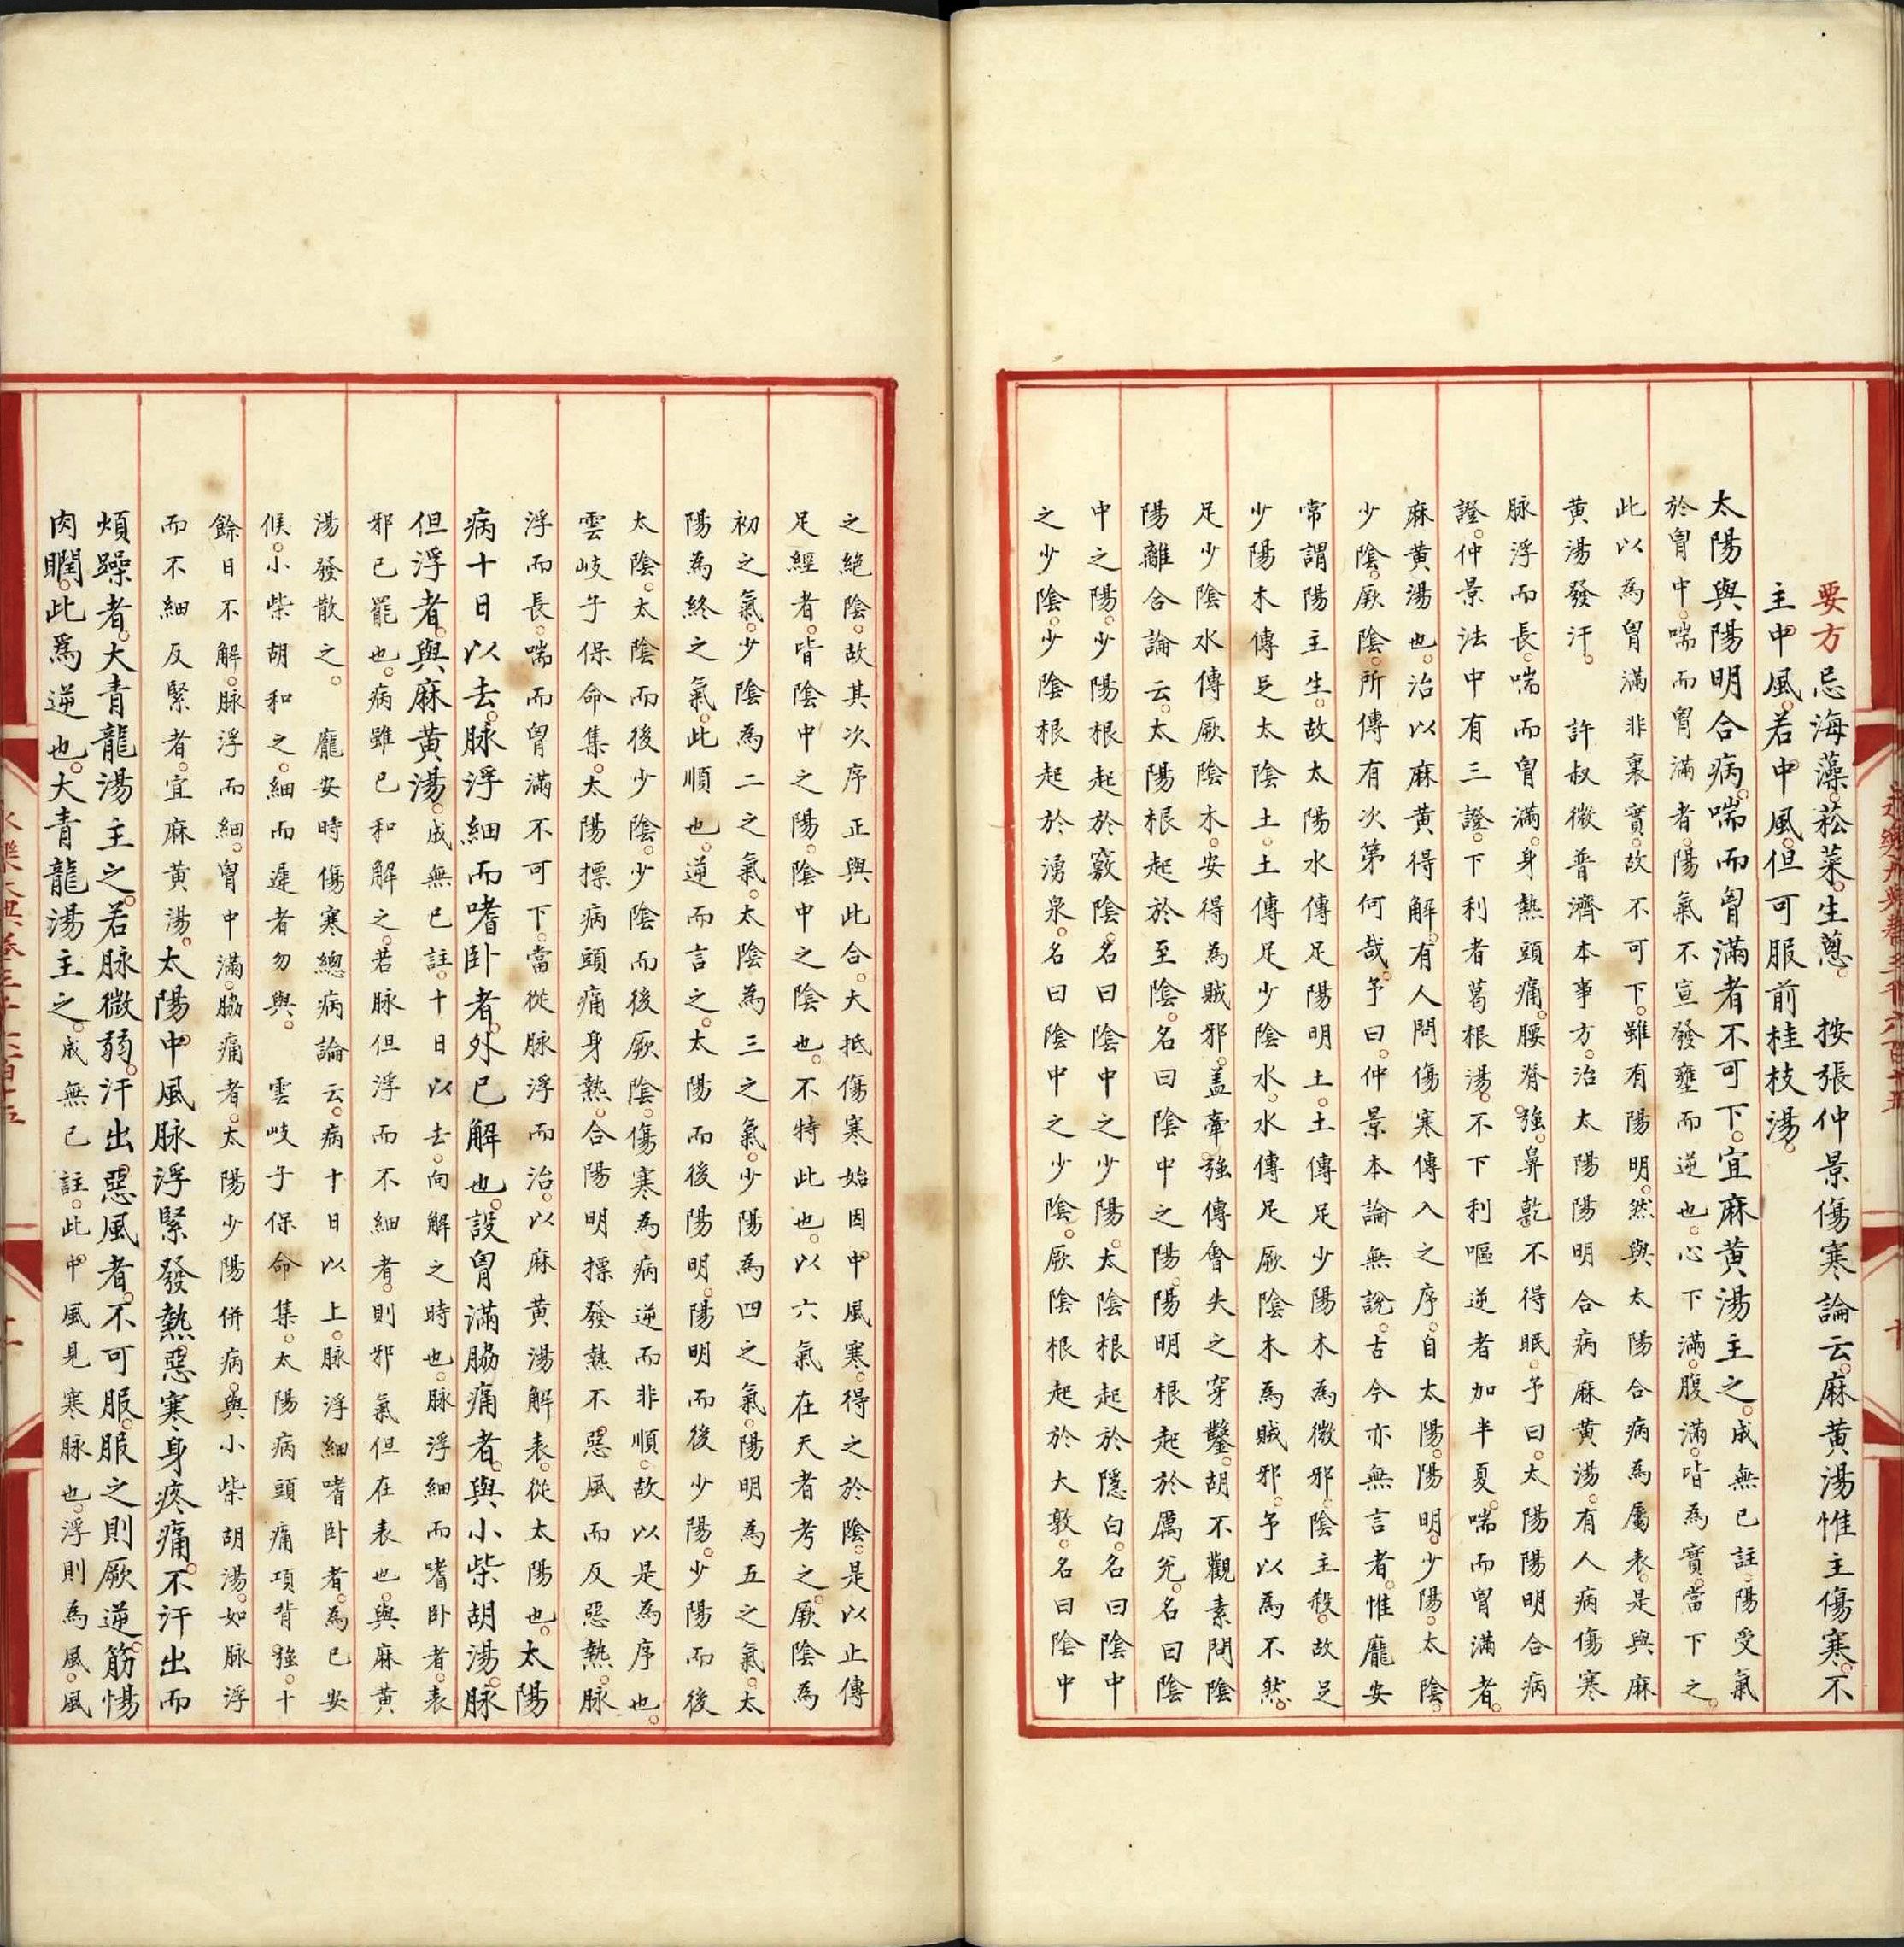 要方忌海藻。菘菜。生蔥。　按張仲景傷寒論云。麻黃湯惟主傷寒。不
主中風。若中風。但可服前桂枝湯。
太陽與陽明合病。喘而胷滿者不可下。宜麻黃湯主之。成無已註。陽受氣
於胷中。喘而胷滿者。陽氣不宣發壅而逆也。心下滿。腹滿。皆為實。當下之。
此以為胷滿非裏實。故不可下。雖有陽明。然與太陽合病為屬表。是與麻
黃湯發汗。　許叔微普濟本事方。治太陽陽明合病麻黃湯。有人病傷寒
脉浮而長。喘而胷滿。身熱頭痛。腰脊強。鼻乾不得眠。予曰。太陽陽明合病
證。仲景法中有三證。下利者葛根湯。不下利嘔逆者加半夏。喘而胷滿者。
麻黃湯也。治以麻黃得解。有人問傷寒傳入之序。自太陽。陽明。少陽。太陰。
少陰。厥陰。所傳有次第何哉。予曰。仲景本論無說。古今亦無言者。惟龐安
常謂陽主生。故太陽水傳足陽明土。土傳足少陽木為微邪。陰主殺。故足
少陽木傳足太陰土。土傳足少陰水。水傳足厥陰木為賊邪。予以為不然。
足少陰水傳厥陰木。安得為賊邪。盖牽強傳會失之穿鑿。胡不觀素問陰
陽離合論云。太陽根起於至陰。名曰陰中之陽。陽明根起於厲兊。名曰陰
中之陽。少陽根起於竅陰。名曰陰中之少陽。太陰根起於隱白。名曰陰中
之少陰。少陰根起於湧泉。名曰陰中之少陰。厥陰根起於大敦。名曰陰中
之絕陰。故其次序正與此合。大抵傷寒始因中風寒。得之於陰。是以止傳
足經者。皆陰中之陽。陰中之陰也。不特此也。以六氣在天者考之。厥陰為
初之氣。少陰為二之氣。太陰為三之氣。少陽為四之氣。陽明為五之氣。太
陽為終之氣。此順也。逆而言之。太陽而後陽明。陽明而後少陽。少陽而後
太陰。太陰而後少陰。少陰而後厥陰。傷寒為病逆而非順。故以是為序也。
雲岐子保命集。太陽摽病頭痛身熱。合陽明摽發熱不惡風而反惡熱。脉
浮而長。喘而胷滿不可下。當從脉浮而治。以麻黃湯解表。從太陽也。太陽
病十日以去。脉浮細而嗜卧者。外已解也。設胷滿脇痛者。與小柴胡湯。脉
但浮者。與麻黃湯。成無已註。十日以去。向解之時也。脉浮細而嗜卧者。表
邪已罷也。病雖已和解之。若脉但浮而不細者。則邪氣但在表也。與麻黃
湯發散之。　龐安時傷寒總病論云。病十日以上。脉浮細嗜卧者。為已安
候。小柴胡和之。細而遲者勿與。　雲岐子保命集。太陽病頭痛項背強。十
餘日不解。脉浮而細。胷中滿。脇痛者。太陽少陽併病。與小柴胡湯。如脉浮
而不細反緊者。宜麻黃湯。太陽中風脉浮緊發熱惡寒身疼痛。不汗出而
煩躁者。大青龍湯主之。若脉微弱。汗出惡風者。不可服。服之則厥逆。筋惕
肉瞤。此爲逆也。大青龍湯主之。成無已註。此中風見寒脉也。浮則為風。風